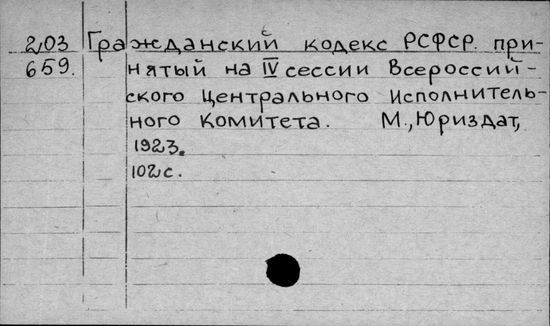 203 Гражданский кодекс РСФСР. при-
659. нятый на IV сессии Всероссий-
ского Центрального Исполнитель-
ного Комитета. М., Юриздат,
1923.
102 с.